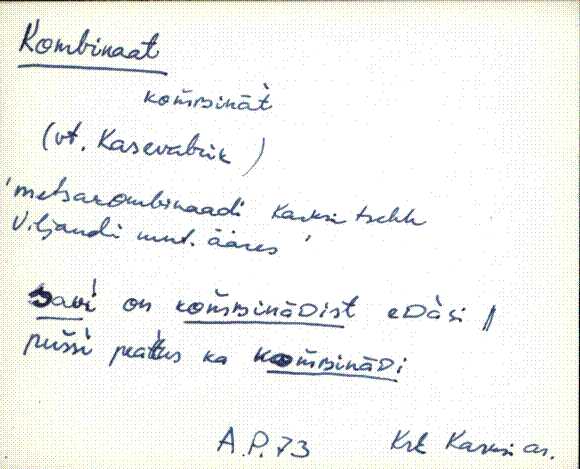 Kombinaat
kom̆ʙinàt̀
(vt. Kasevabrik)
'metsakombinaadi Karksi tsehh
Viljandi mnt. ääres'
savi on kom̆ʙinᴀ̈ᴅist eᴅàsi ||
pus̆si peatus ka kom̆ʙinäᴅi
A.P. 73 Krk Karksi as.